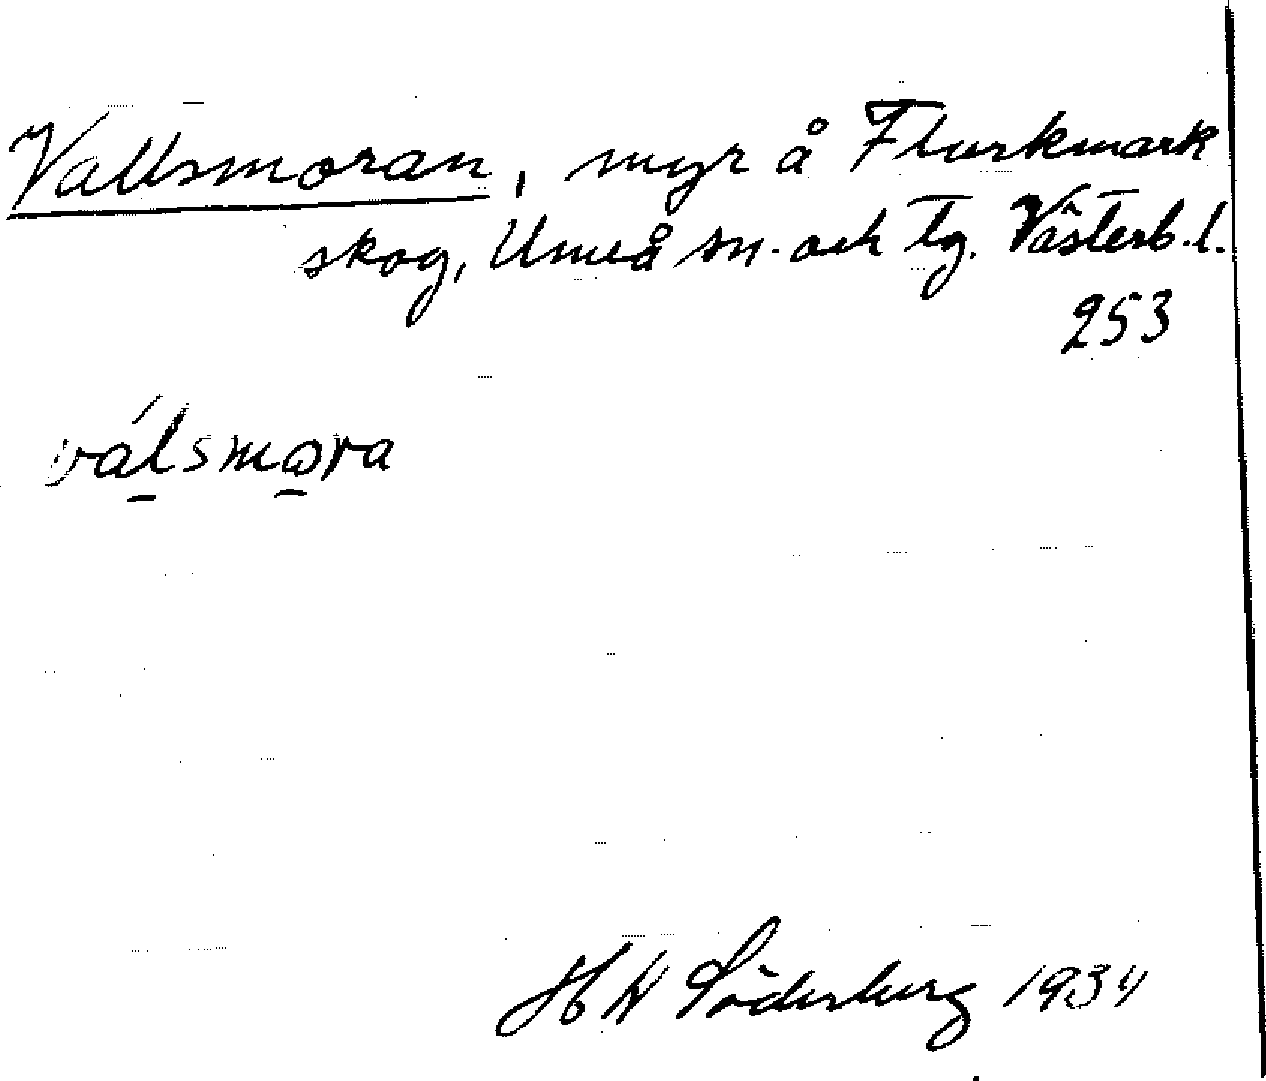 Vallsmoran, myr å Flurkmark
skog, Umeå sn. och tg. Västerb. l.
253
válsmora
H W Söderberg 1934